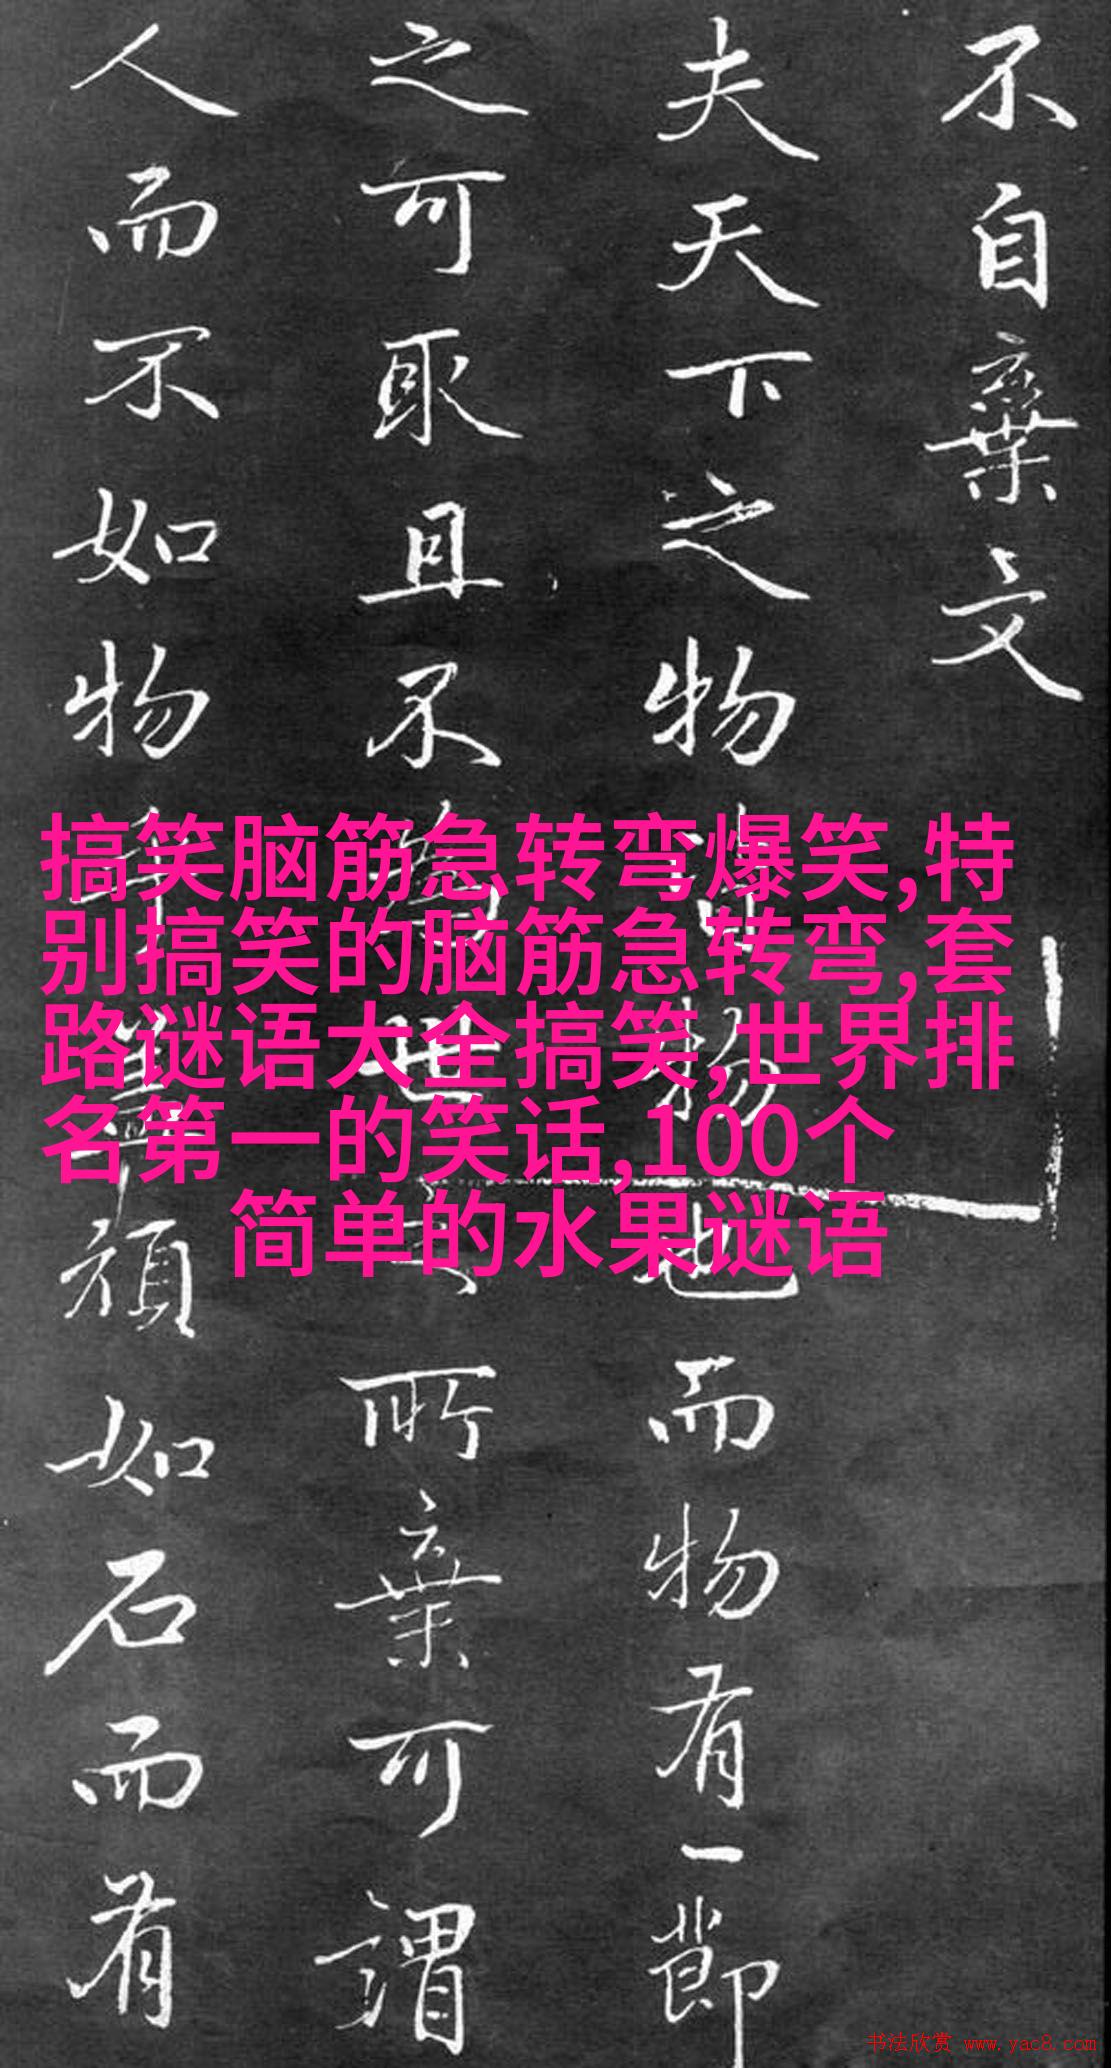 不自棄文
夫天下之物皆物也而物有一節
之可取且不為世之所棄可謂
人而不如物乎蓋頑如石而有
搞笑脑筋急转弯爆笑,特
别搞笑的脑筋急转弯,套
路谜语大全搞笑,世界排
名第一的笑话,100个
简单的水果谜语
书法欣赏 www.yac8.com